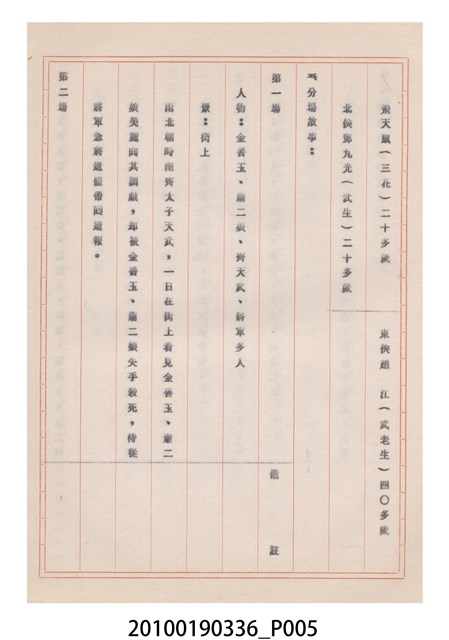 飛天鼠(三花)二十多歲
東俠趙 江(武老生)四〇多歲
北俠鄭九光(武生)二十多歲
五分場故事:
第一場
備 註
人物:金善玉、蕭二娘、齊天武、將軍多人
景:街上
南北朝時南齊太子天武,一日在街上看見金善玉、蕭二
娘美麗向其調戲,却被金善玉、蕭二娘失手殺死,侍從
將軍急將遺體帶回通報。
第二場
20100190336_P005